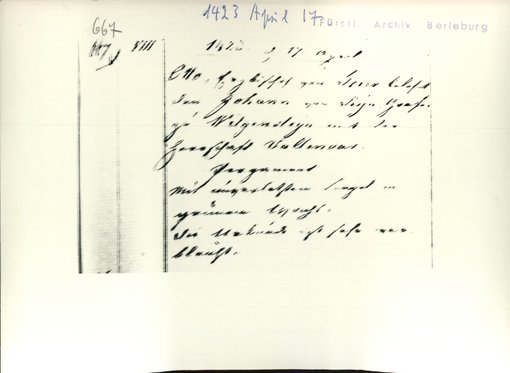 1423 April 17.
Fürstl. Archiv Berleburg
667
1423 d. 17 April
Otto, Erzbischof von Trier belehnt
den Johann von Sayn Grafen
zu Witgenstein mit der
Herrschaft Vallendar.
Pergament
Mit unverletztem Siegel in
grünem Wachs.
Die Urkunde ist sehr ver-
bleicht.